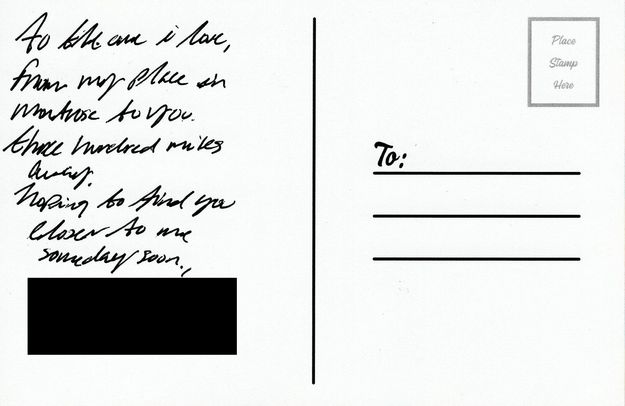 To the one i love,
from my place in
montrose to you.
three hundred miles
away.
hoping to find you
closer to me
someday soon.,
Place
Stamp
Here
To: